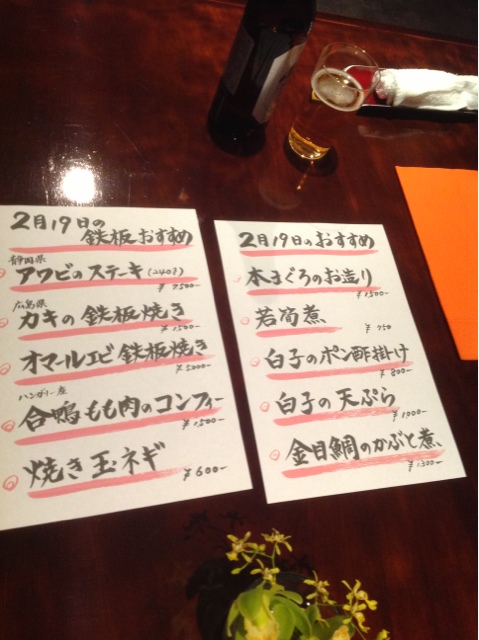 2月19日の
鉄板おすすめ
静岡県
アワビのステーキ(240g)
¥7500-
広島県
カキの鉄板焼き
¥1500-
オマールエビ鉄板焼き
¥5000-
ハンガリー産
合鴨もも肉のコンフィー
¥1500-
焼き玉ネギ
¥600-
2月19日のおすすめ
本まぐろのお造り
¥1500-
若筍煮
¥750
白子のポン酢掛け
¥800-
白子の天ぷら
¥1000-
金目鯛のかぶと煮
¥1300-